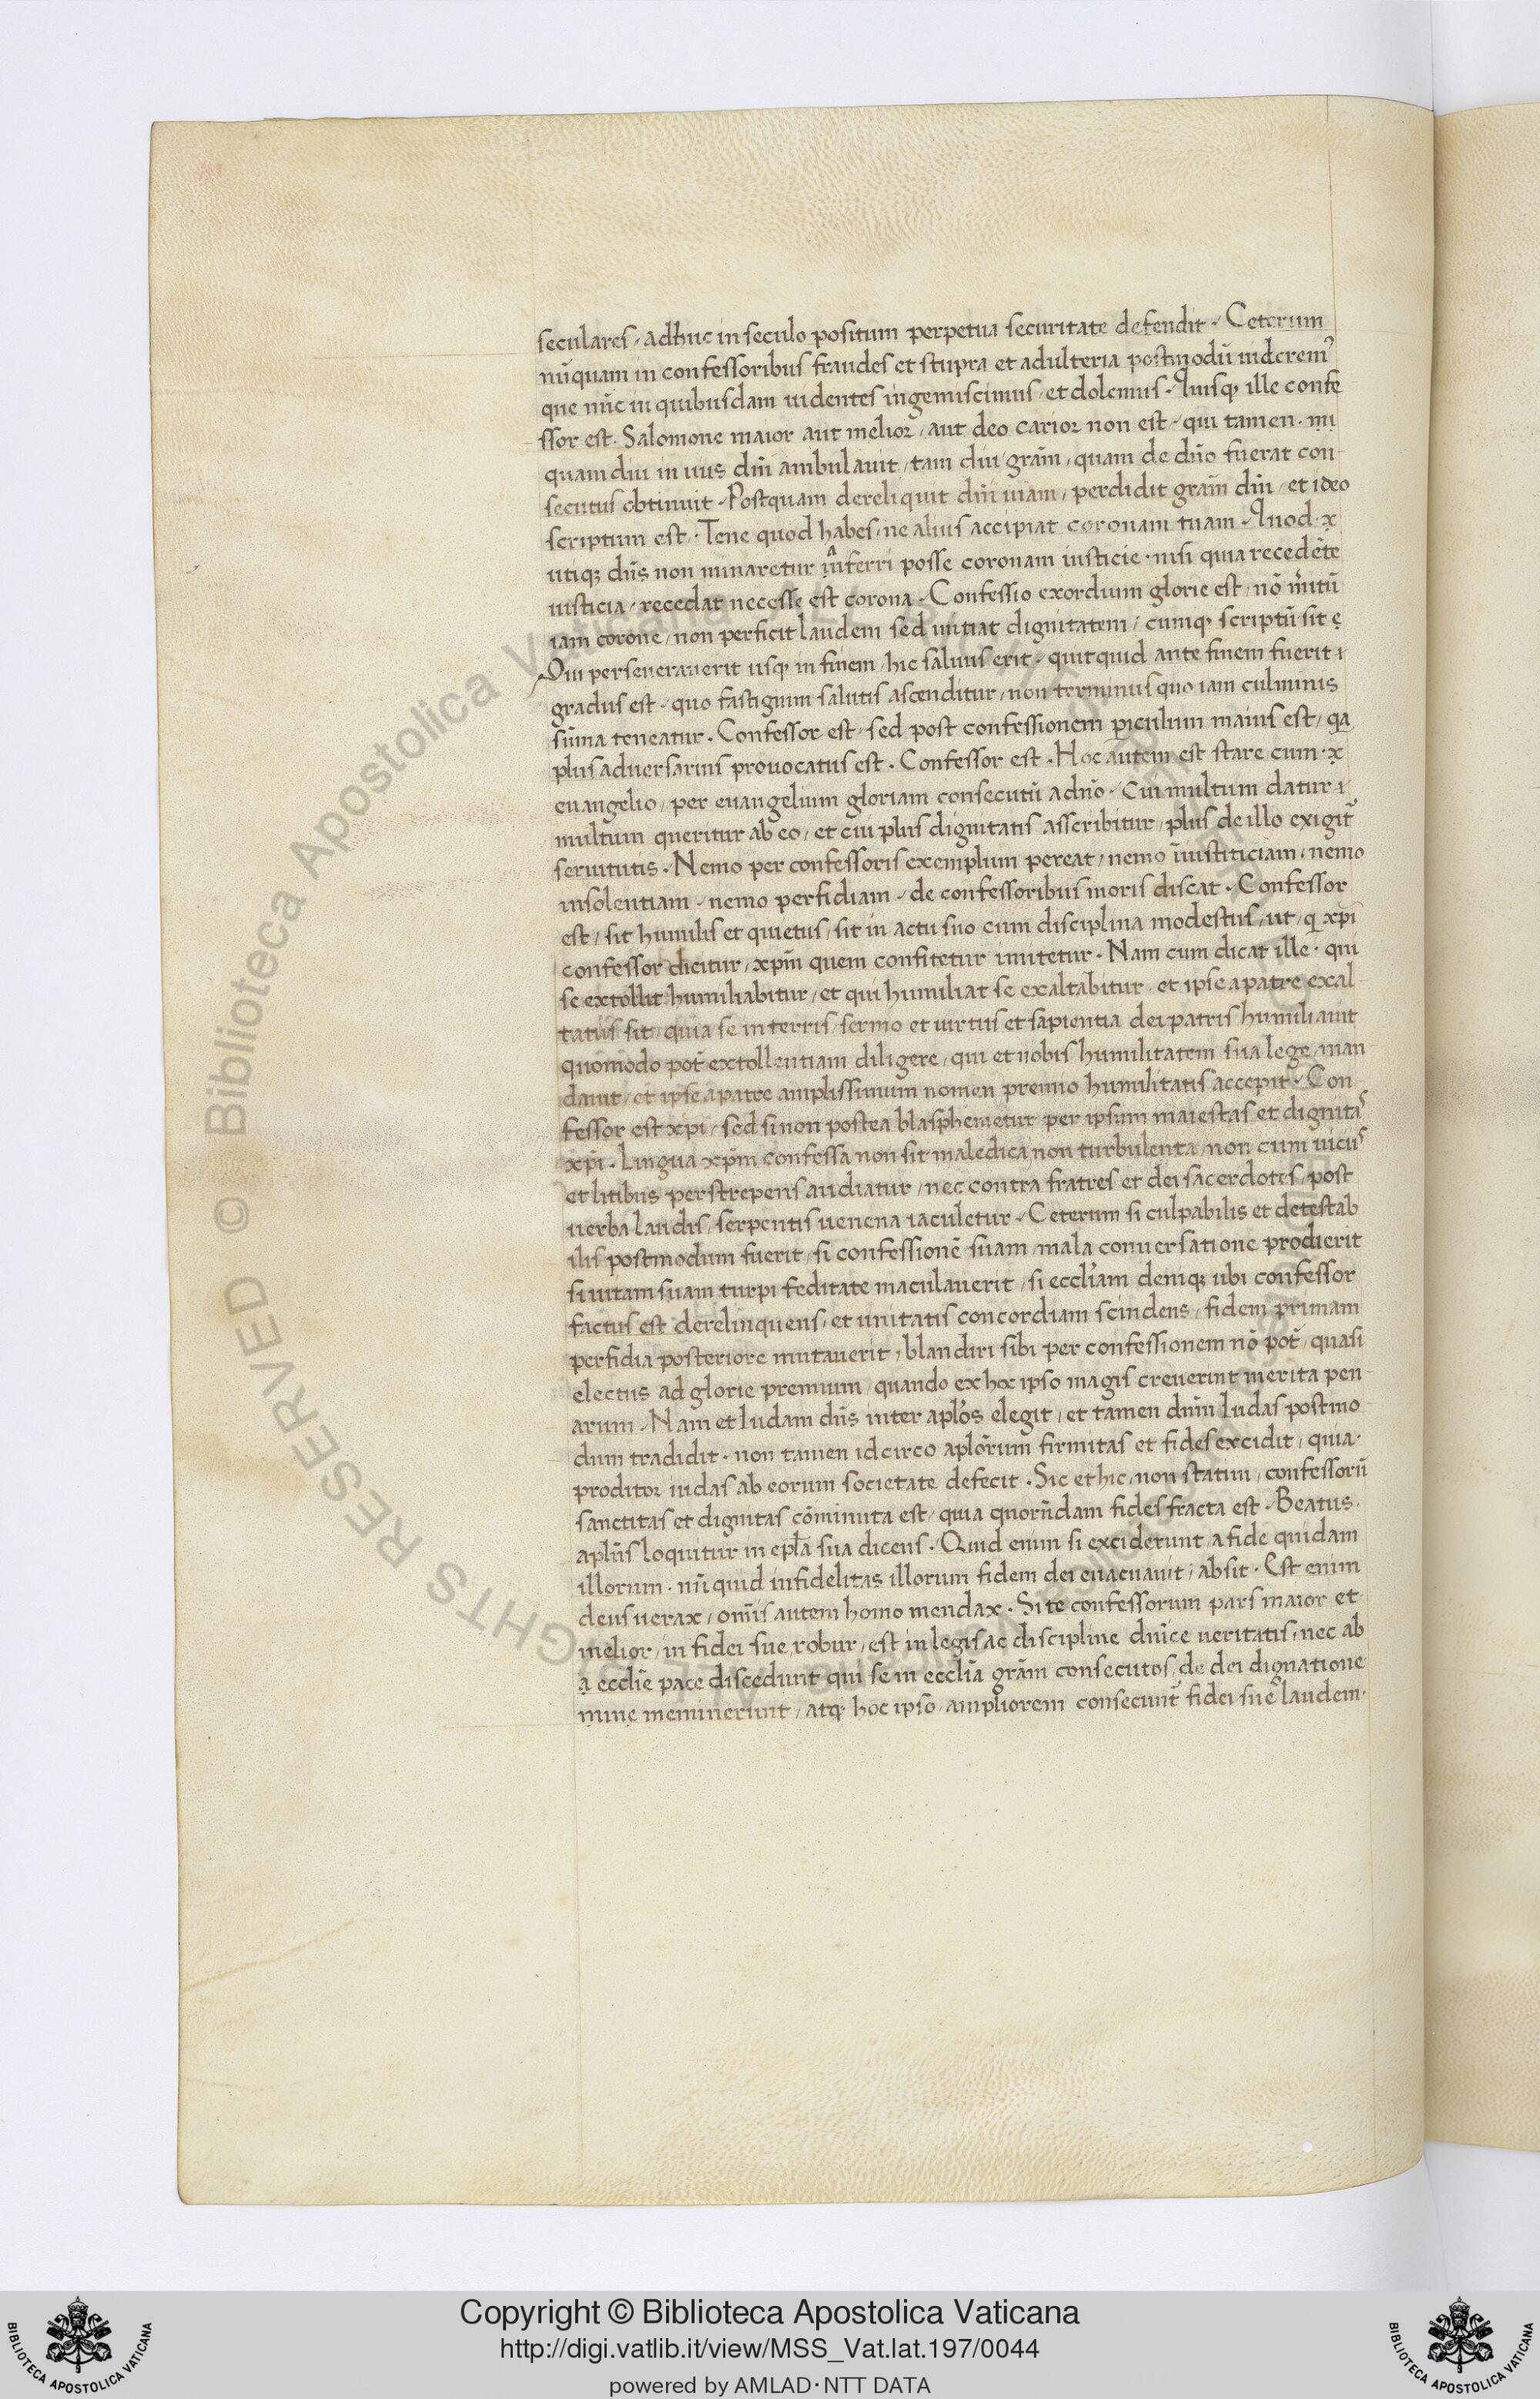 seculares, adhuc in seculo positum perpetua securitate defendit. Ceterum
nūquam in confessoribus fraudes et stupra et adulteria postmodū uideremꝰ
que nūc in quibusdam uidentes ingemiscimus, et dolemus. Quisqꝫ ille confe
ssor est. Salomone maior aut melior, aut deo carior non est, qui tamen. ṃị
quam diu in uiis dn̄i ambulauit, tam diu grām, quam de dn̄o fuerat con
secutus obtinuit. Postquam dereliquit dn̄i uiam, perdidit grām dn̄i, et ideo
scriptum est. Tene quod habes, ne alius accipiat coronam tuam. Quod. x̣
utiqꝫ dn̄s non minaretur auferri posse coronam iusticie. nisi quia recedēte
iusticia, recedat necesse est corona. Confessio exordium glorie est, nō
iam corone, non perficit laudem sed initiat dignitatem, cumqꝫ scriptū sit ẹ
Qui perseuerauerit usqꝫ in finem, hic saluus erit. quitquid ante finem fuerit ı
gradus est, quo fastigium salutis ascenditur, non terminus quo iam culminis
sūma teneatur. Confessor est, sed post confessionem ꝑiculum maius est, qa
plus aduersarius prouocatus est. Confessor est. Hoc autem est stare cum. x̣
euangelio, per euangelium gloriam consecutū a dn̄o. Cui multum datur ı
multum queritur ab eo, et cui plus dignitatis asscribitur, plus de illo exigit᷑
seruitutis. Nemo per confessoris exemplum pereat, nemo īiustiticiam, nemo
insolentiam, nemo perfidiam, de confessoribus moris discat. Confessor
est, sit humilis et quietus, sit in actu suo cum disciplina modestus, ut, q xp̄i
confessor dicitur, xp̄m quem confitetur imitetur. Nam cum dicat ille. qui
se extollit humiliabitur, et qui humiliat se exaltabitur, et ipse a patre exal
tatus sit, quia se in terris, sermo et uirtus et sapientia dei patris humiliauit
quomodo pot̄ extollentiam diligere, qui et nobis humilitatem sua lege, man
dauit, et ipse a patre amplissimum nomen premio humilitatis accepit. Con
fessor est xp̄i, sed si non postea blasphemetur per ipsum maiestas et dignitas
xp̄i. Lingua xp̄m confessa non sit maledica, non turbulenta, non cum uicus
et litibus perstrepens audiatur, nec contra fratres et dei sacerdotes, post
uerba laudis, serpentis uenena iaculetur. Ceterum si culpabilis et detestab
ilis postmodum fuerit, si confessionē suam, mala conuersatione prodierit
si uitam suam turpi feditate maculauerit, si eccl̄iam deniqꝫ ubi confessor
factus est derelinquens, et unitatis concordiam scindens, fidem primam
perfidia posteriore mutauerit, blandiri sibi per confessionem nō pot̄, quasi
electus ad glorie premium, quando ex hoc ipso magis creuerint merita pen
arum. Nam et Iudam dn̄s inter apl̄os elegit, et tamen dn̄m Iudas postmo
dum tradidit. non tamen idcirco apl̄orum firmitas et fides excidit, quia.
proditor iudas ab eorum societate defecit. Sic et hic, non statim, confessorū
sanctitas et dignitas cōminuta est, quia quorūdam fides fracta est. Beatus.
apl̄us loquitur in epl̄a sua dicens. Quid enim si exciderunt, a fide quidam
illorum. nū quid infidelitas illorum fidem dei euacuauit, absit. Est enim
deus uerax, omīs autem homo mendax. Si te confessorum pars maior et
melior, in fidei sue robur, est in legis ac discipline dn̄ice ueritatis, nec ab
ạ eccl̄ie pace discedunt qui se in eccl̄ia grām consecutos, de dei dignatione
ṃine meminerunt, atqꝫ hoc ipso, ampliorem consecunt̄ fidei sue laudem.
Copyright © Biblioteca Apostolica Vaticana
http://digi.vatlib.it/view/MSS_Vat.lat.197/0044
powered by AMLAD·NTT DATA